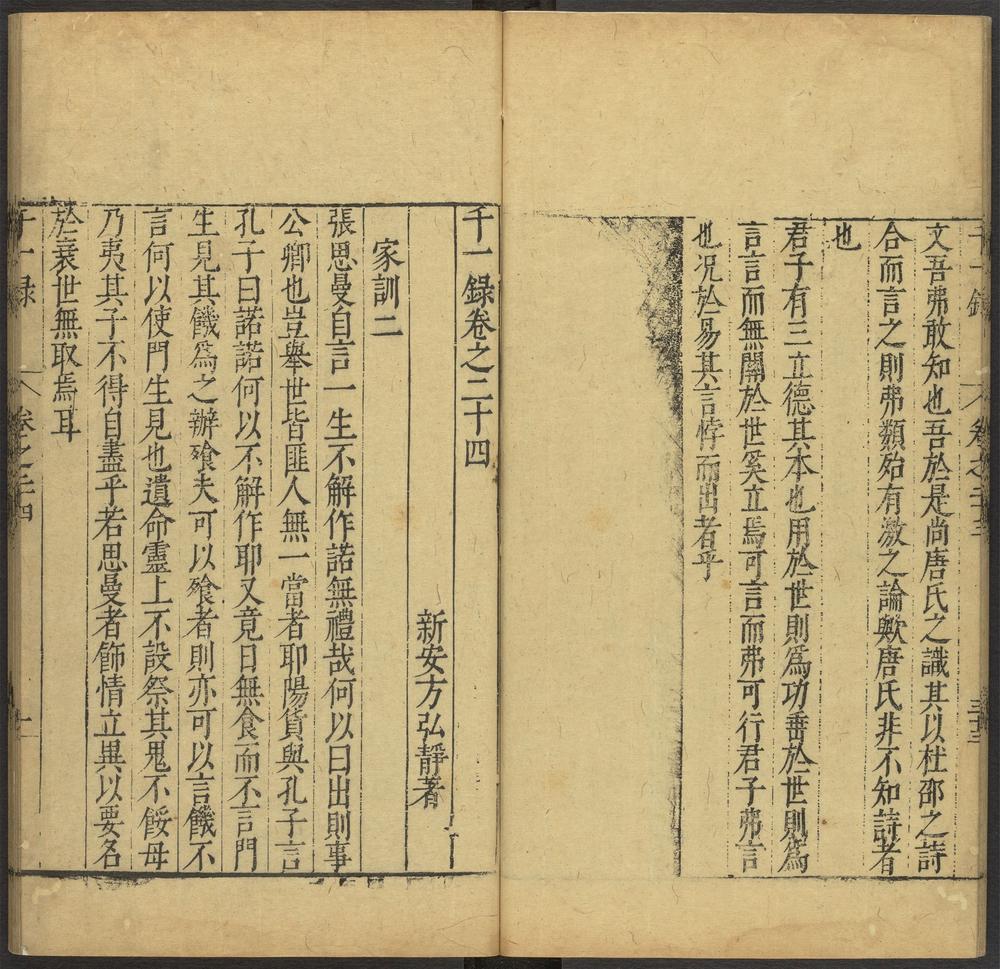 千一錄 卷之二十三 三十三
文吾弗敢知也吾於是尚唐氏之識其以杜邵之詩
合而言之則弗類殆有激之論歟唐氏非不知詩者
也
君子有三立德其本也用於世則為功垂於世則為
言言而無關於世奚立焉可言而弗可行君子弗言
也况於易其言悖而出者乎
千一錄卷之二十四
新安方弘靜著
家訓二
張思曼自言一生不解作諾無禮哉何以曰出則事
公卿也豈舉世皆匪人無一當者耶陽貨與孔子言
孔子曰諾諾何以不解作耶又竟日無食而不言門
生見其饑為之辦飱夫可以飱者則亦可以言饑不
言何以使門生見也遺命靈上不設祭其鬼不餒毋
乃夷其子不得自盡乎若思曼者飾情立異以要名
於衰世無取焉耳
千一錄 卷之二十四 一